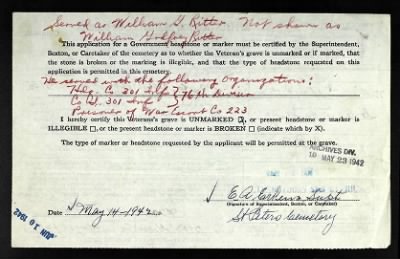 Served as William G. Ritter. Not shown as
William Godfrey Ritter
This application for a Government headstone or marker must be certified by the Superintendent,
Sexton, or Caretaker of the cemetery as to whether the Veteran's grave is unmarked or if marked, that
the stone is broken or the marking is illegible, and that the type of headstone requested on this
application is permitted in this cemetery.
He served with the following Organizations:
Hdq. Co 301 Inf 76th Division
Co G. 301 Inf
Prisoner of War Escort Co 223
I hereby certify this Veteran's grave is UNMARKED ☒, or present headstone or marker is
ILLEGIBLE ☐, or the present headstone or marker is BROKEN ☐ (indicate which by X).
The type of marker or headstone requested by the applicant will be permitted at the grave.
ARCHIVES DIV.
10 MAY 23 1942
E. A. Supt
(Signature of Superintendent, Sexton, or Caretaker)
St Peters Cemetery
Date May 14-1942
JUN 10 1942